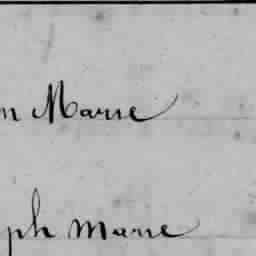 n Marie
ph Marie